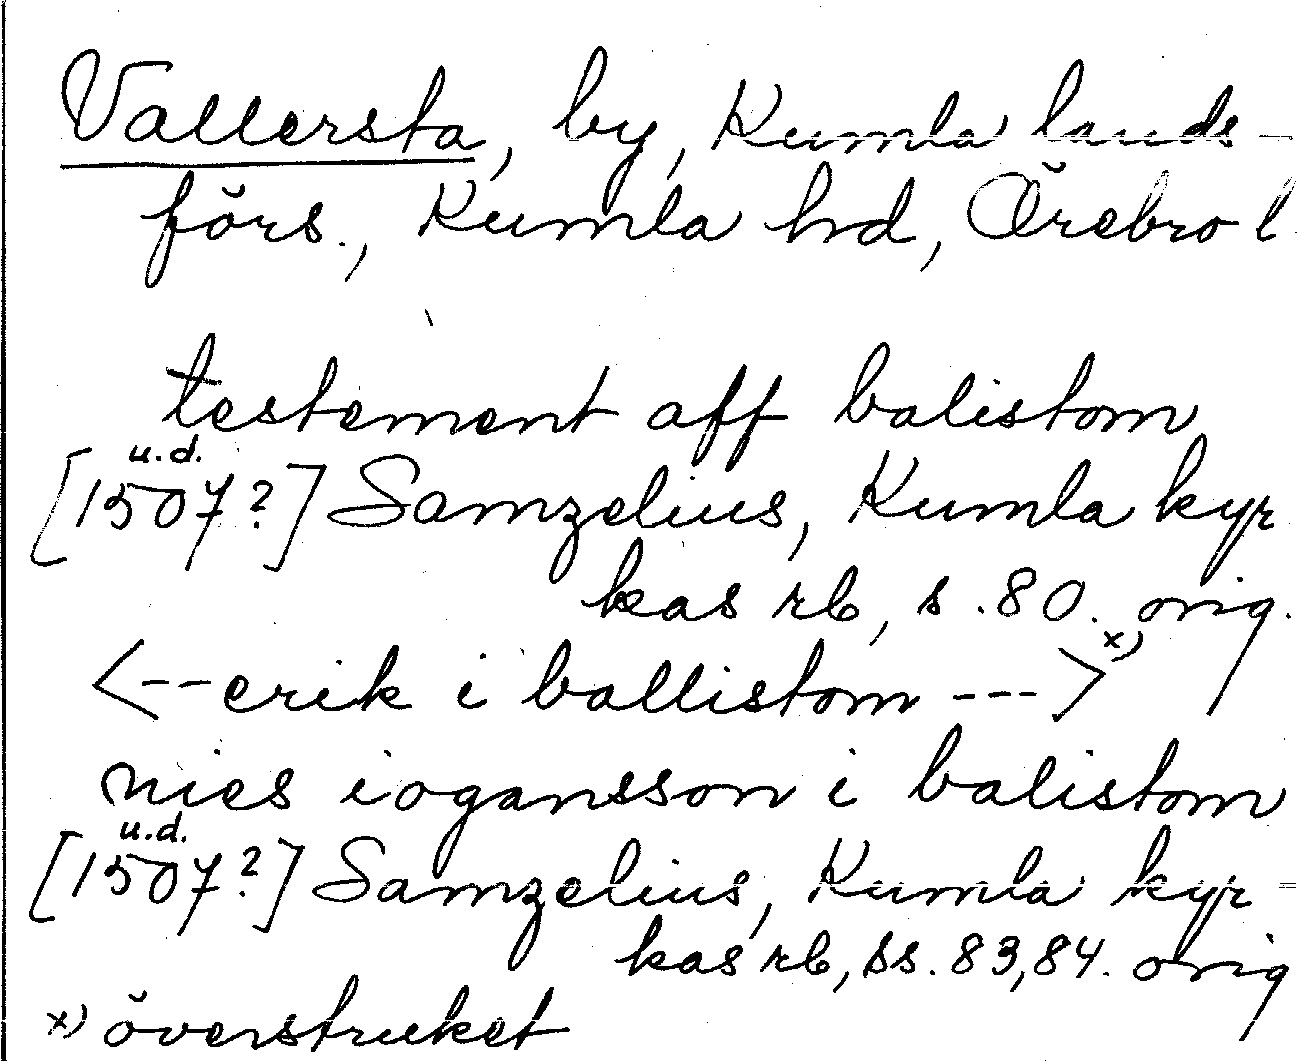 Vallersta, by, Kumla lands-
förs., Kumla hd, Örebro l
testement aff balistom
u.d.
[1507?] Samzelius, Kumla kyr
kas rb, s. 80. orig.
<--erik i ballistom --->x)
nies iogansson i balistom
u.d.
[1507?] Samzelius, Kumla kyr-
kas rb, ss. 83,84. orig
x) överstruket